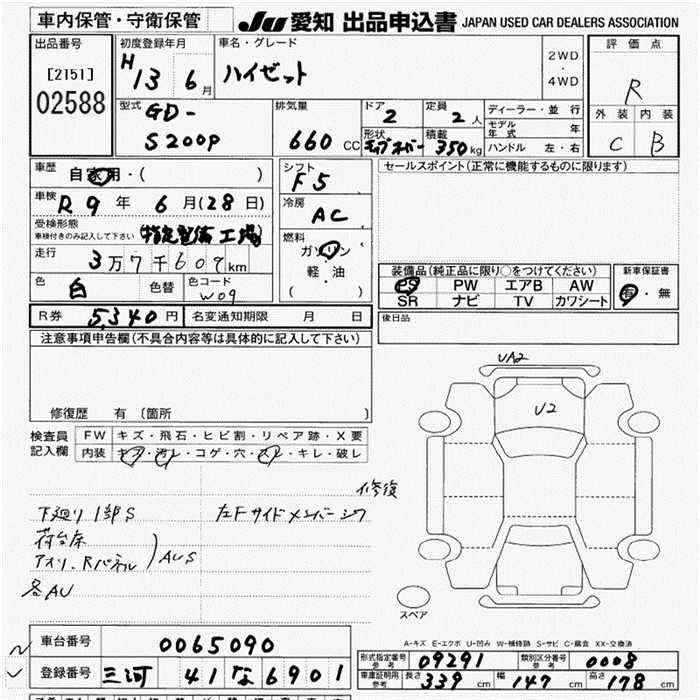 車内保管・守衛保管
JU 愛知 出品申込書 JAPAN USED CAR DEALERS ASSOCIATION
出品番号
[2151]
02588
初度登録年月
H 13 6月
車名・グレード
ハイゼット
2WD
・
4WD
評価点
R
外装 内装
C B
型式 GD-
S200P
排気量
660 CC
ドア 2
定員 2 人
形状
積載 350 kg
ディーラー・並行
モデル年式 年
ハンドル 左・右
車歴 自家用・( )
車検 R9年 6月(28日)
受検形態
車検付きのみ記入して下さい (指定整備工場)
走行 3万7千609km
色 白 色替 色コード W09
シフト F5
冷房 AC
燃料
ガソリン
軽・油
( )
セールスポイント(正常に機能するものに限ります)
装備品(純正品に限り○をつけてください)
PS PW エアB AW
SR ナビ TV カワシート
新車保証書
有・無
R券 5,340円 名変通知期限 月 日
後日品
注意事項申告欄(不具合内容等は具体的に記入して下さい)
修復歴 有〔箇所 〕
検査員記入欄
FW キズ・飛石・ヒビ割・リペア跡・X要
内装 キズ・汚レ・コゲ・穴・スレ・キレ・破レ
修復
下廻り1部S
左Fサイドメンバーシワ
荷台床
アオリ、Rパネル )AUS
各AU
UA2
U2
スペア
A-キズ E-エクボ U-凹み W-補修跡 S-サビ C-腐食 XX-交換済
車台番号 0065090
登録番号 三河 41 な 6901
形式指定番号 参考 09291 類別区分番号 参考 0008
車庫証明用 参考 長さ 339 cm 幅 147 cm 高さ 178 cm